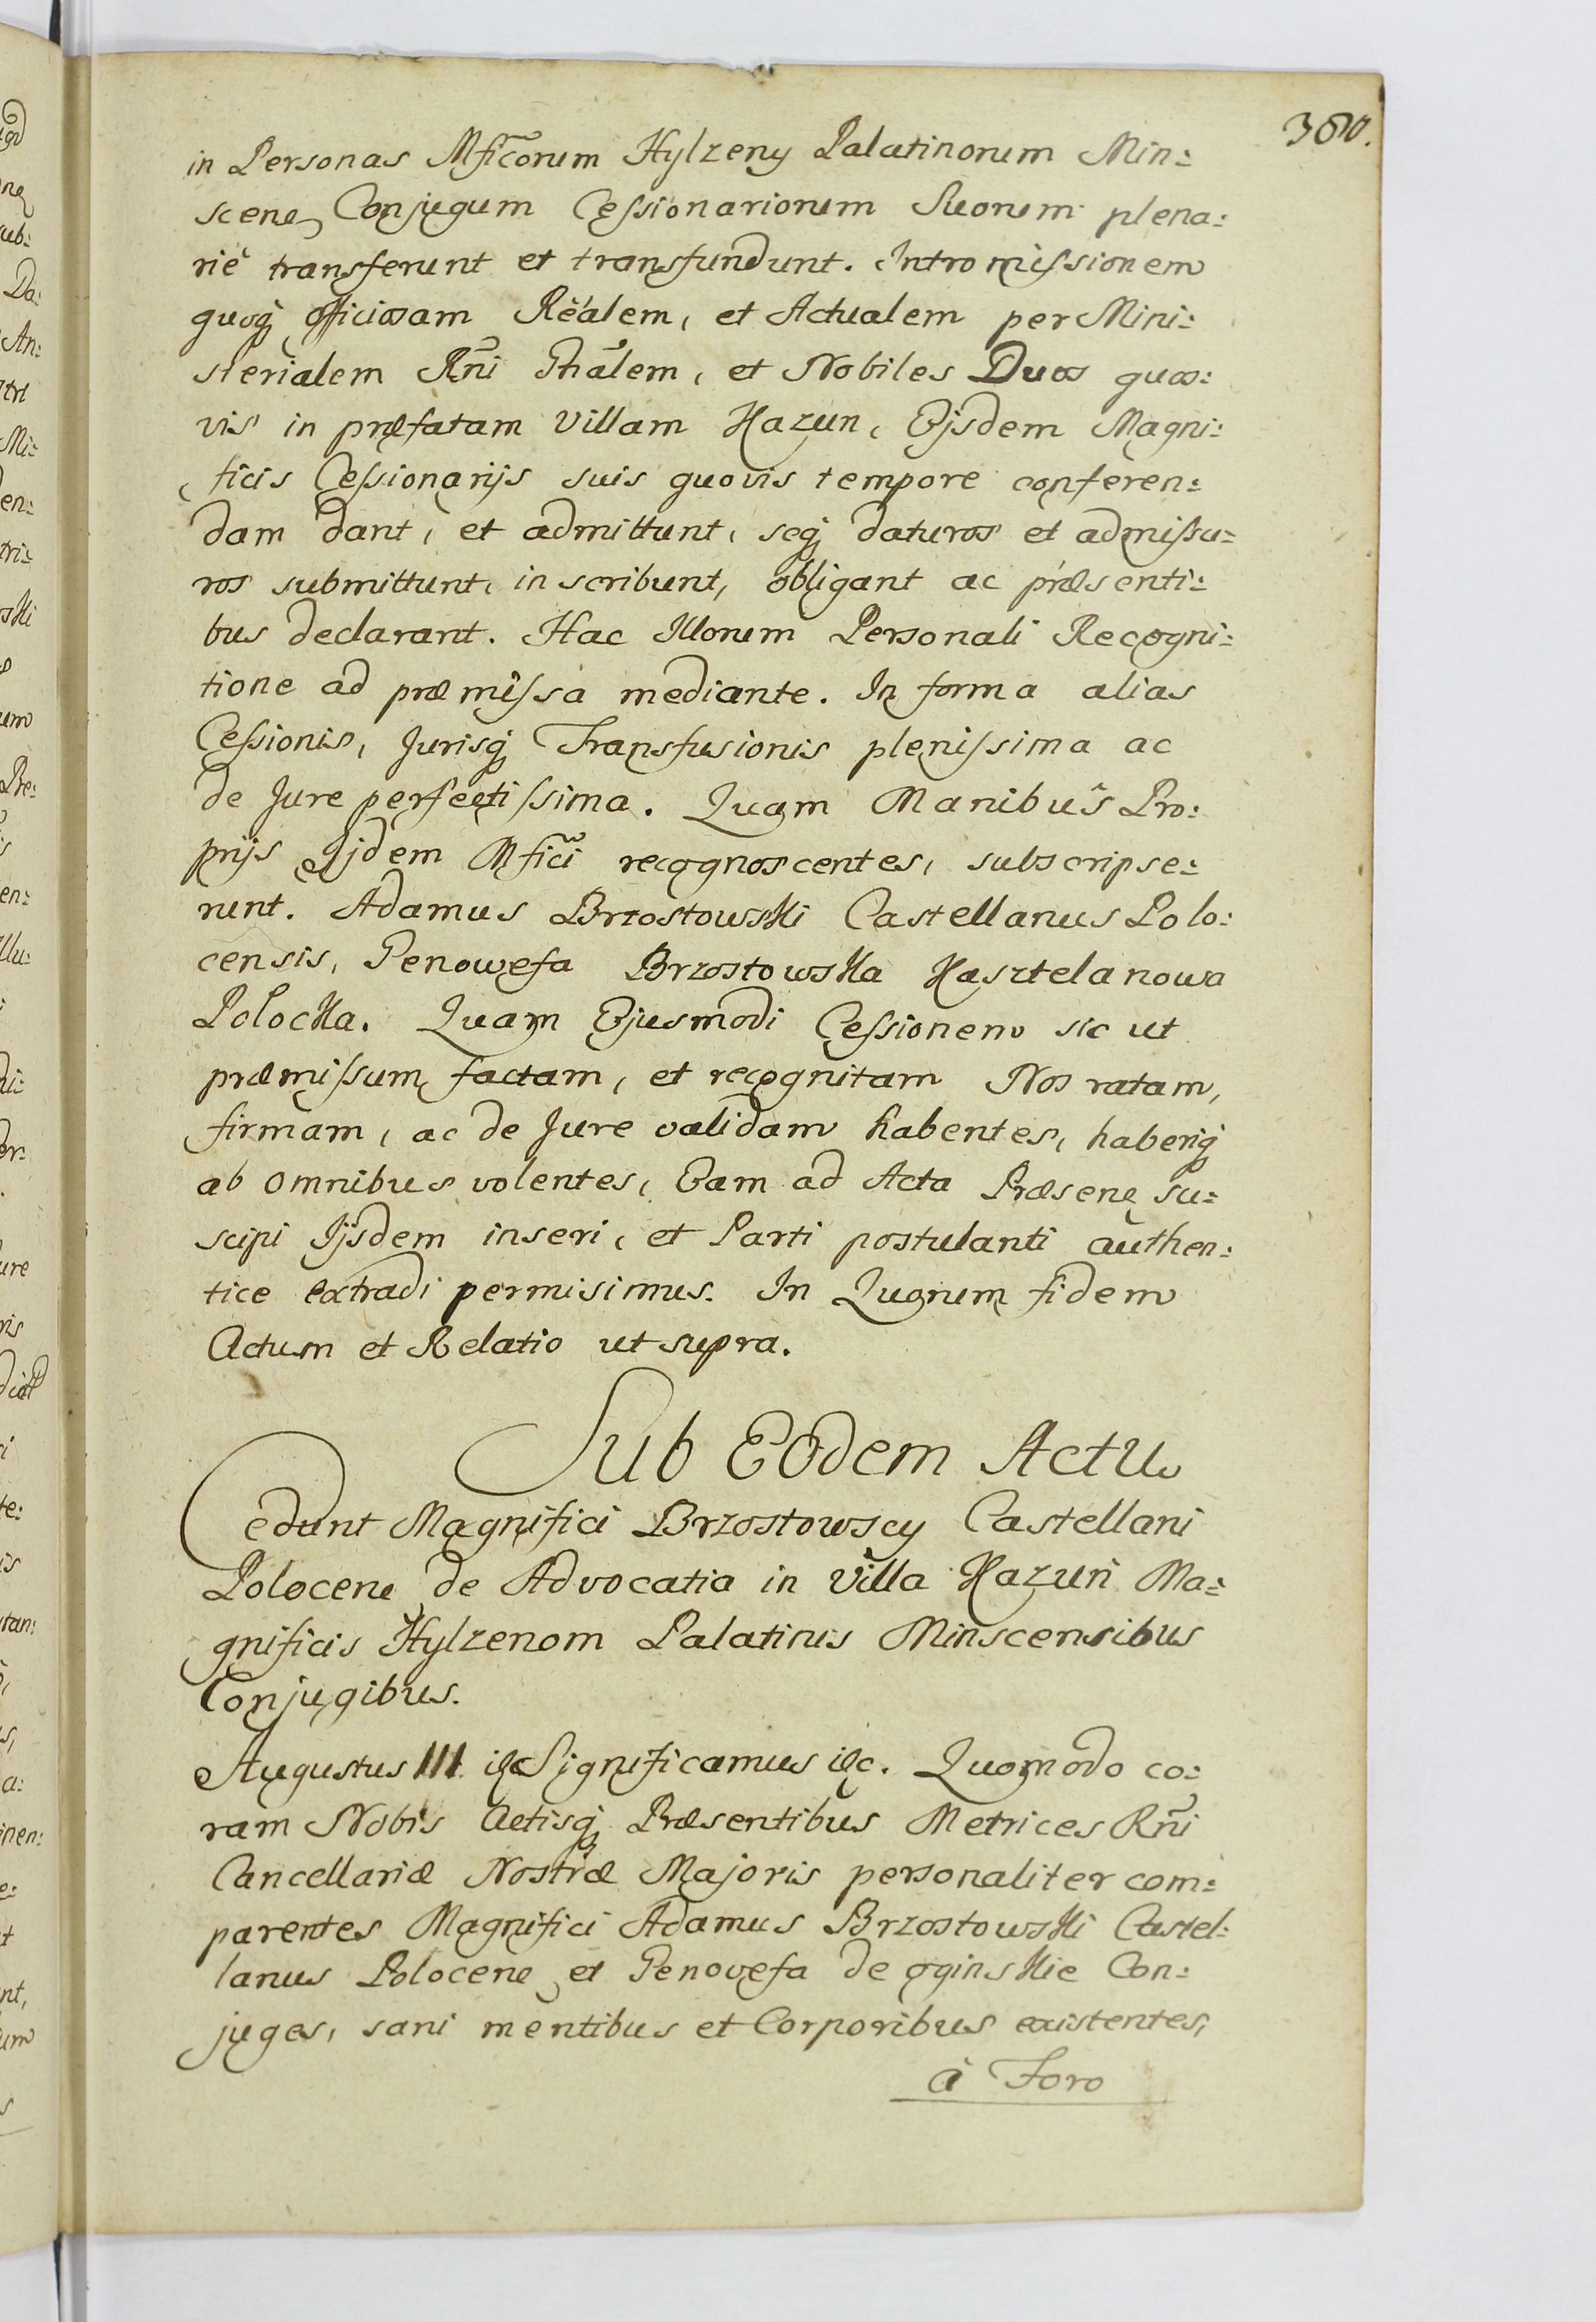 380.
in Personas Mfic̃orum Hylzeny Palatinorum Min:
scen Conjugum Cessionariorum Suorum plena:
riè transferunt et transfundunt. Intromissionem
quoq officiosam Reálem, et Actualem per Mini:
sterialem Rñi Gñalem, et Nobiles Duos quos:
vis in præfatam Villam Kazun, Eijsdem Magni:
ficis Cessionarijs suis quovis tempore conferen:
dam dant, et admittunt, seq daturos et admissu:
ros submittunt, inscribunt, obligant ac præsenti:
bus declarant. Hac Illorum Personali Recogni:
tione ad præmissa mediante. In forma alias
Cessionis, Jurisq Transfusionis plenissima ac
de Jure perfectissima. Quam Manibus Pro:
prijs Ijdem Mfici recognoscentes, subscripse:
runt. Adamus Brzostowski Castellanus Polo:
censis, Genowefa Brzostowska Kasztelanowa
Polocka. Quam Ejusmodi Cessionem sic ut
præmissum factam, et recognitam Nos ratam,
firmam, ac de Jure validam habentes, haberiq
ab omnibus volentes, Eam ad Acta Præsen su:
scipi Ijsdem inseri, et Parti postulanti authen:
tice extradi permisimus. In Quorum fidem
Actum et Relatio ut supra.
Sub Eodem Actu
Cedunt Magnifici Brzostowscy Castellani
Polocen de Advocatia in Villa Kazuń Ma:
gnificis Hylzenom Palatinis Minscensibus
Conjugibus.
Augustus III. &c Significamus &c. Quomodo co:
ram Nobis Actisq Præsentibus Metrices Rñi
Cancellariæ Nostræ Majoris personaliter com:
parentes Magnifici Adamus Brzostowski Castel:
lanus Polocen et Genovefa de oginskie Con:
juges, sani mentibus et Corporibus existentes,
à Foro